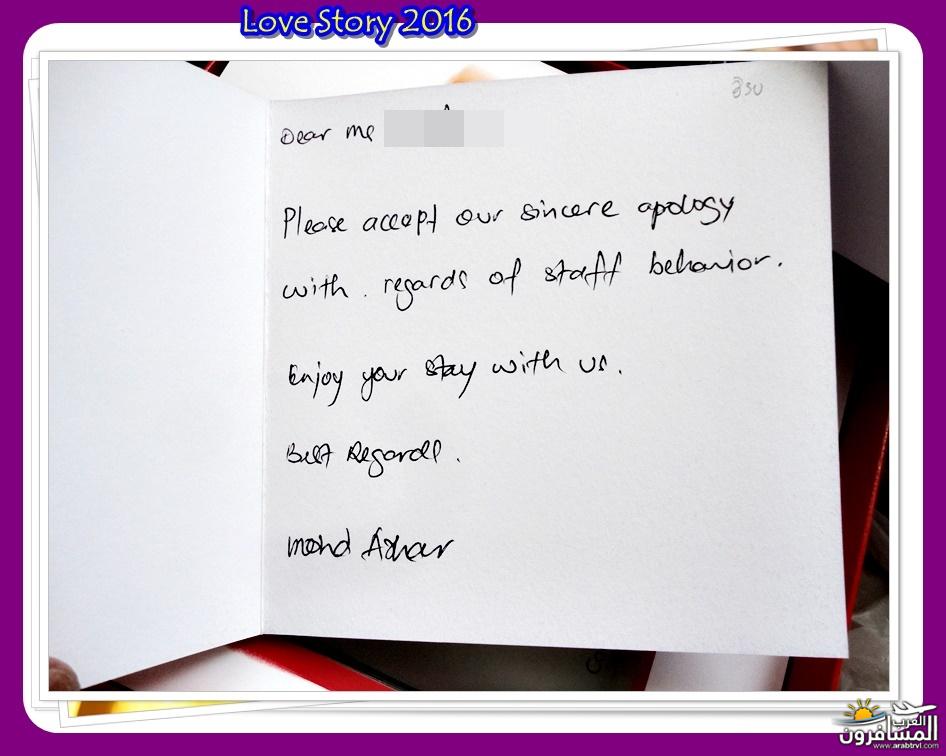 Love Story 2016
350
Dear Mr
Please accept our sincere apology
with regards of staff behavior.
Enjoy your stay with us.
Best Regards.
Mohd Azhar
العرب
المسافرون
www.arabtrvl.com